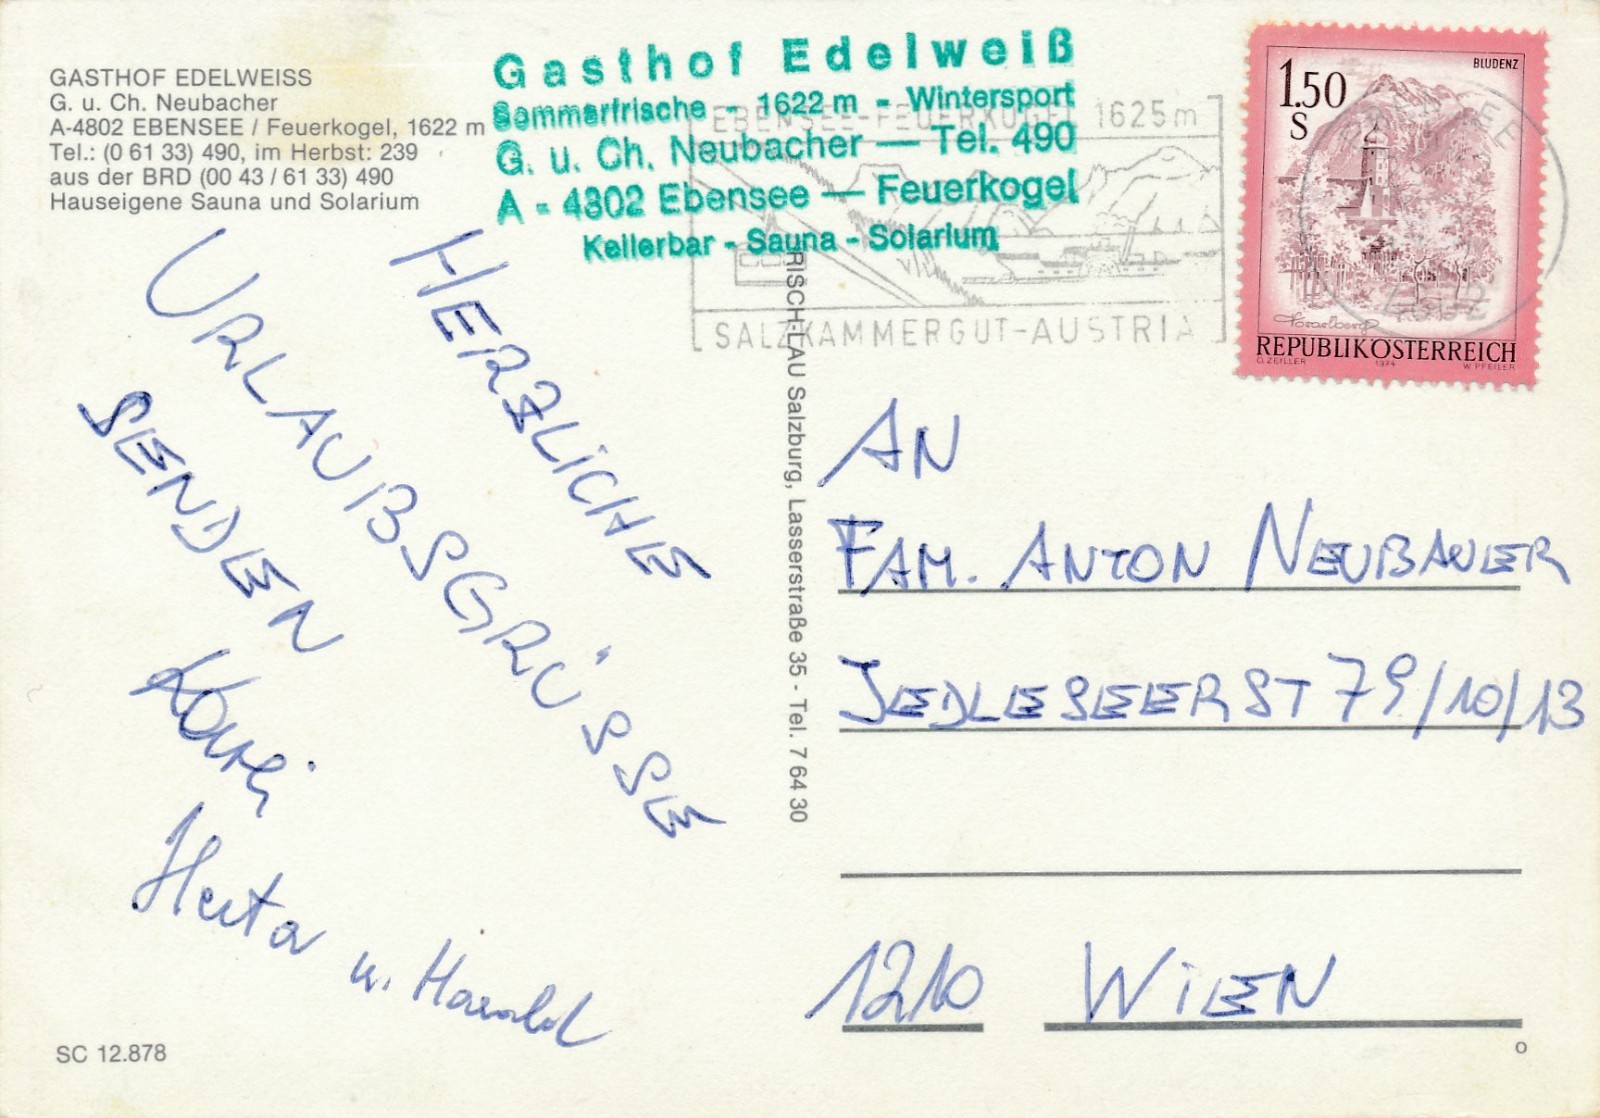 GASTHOF EDELWEISS
G. u. Ch. Neubacher
A-4802 EBENSEE / Feuerkogel, 1622 m
Tel.: (0 61 33) 490, im Herbst: 239
aus der BRD (00 43 / 61 33) 490
Hauseigene Sauna und Solarium
Gasthof Edelweiß
Sommerfrische - 1622 m - Wintersport
G. u. Ch. Neubacher — Tel. 490
A - 4802 Ebensee — Feuerkogel
Kellerbar - Sauna - Solarium
EBENSEE-FEUERKOGEL 1625m
SALZKAMMERGUT-AUSTRIA
BLUDENZ
1.50
S
Vorarlberg
REPUBLIK ÖSTERREICH
O. ZEILLER 1974 W. PFEILER
HERZLICHE
URLAUBSGRÜSSE
SENDEN
Karli
Herta
u. Harald
RISCH-LAU Salzburg, Lasserstraße 35 - Tel. 7 64 30
AN
FAM. ANTON NEUBAUER
JEDLESEERST 79/10/13
1210 WIEN
SC 12.878
o